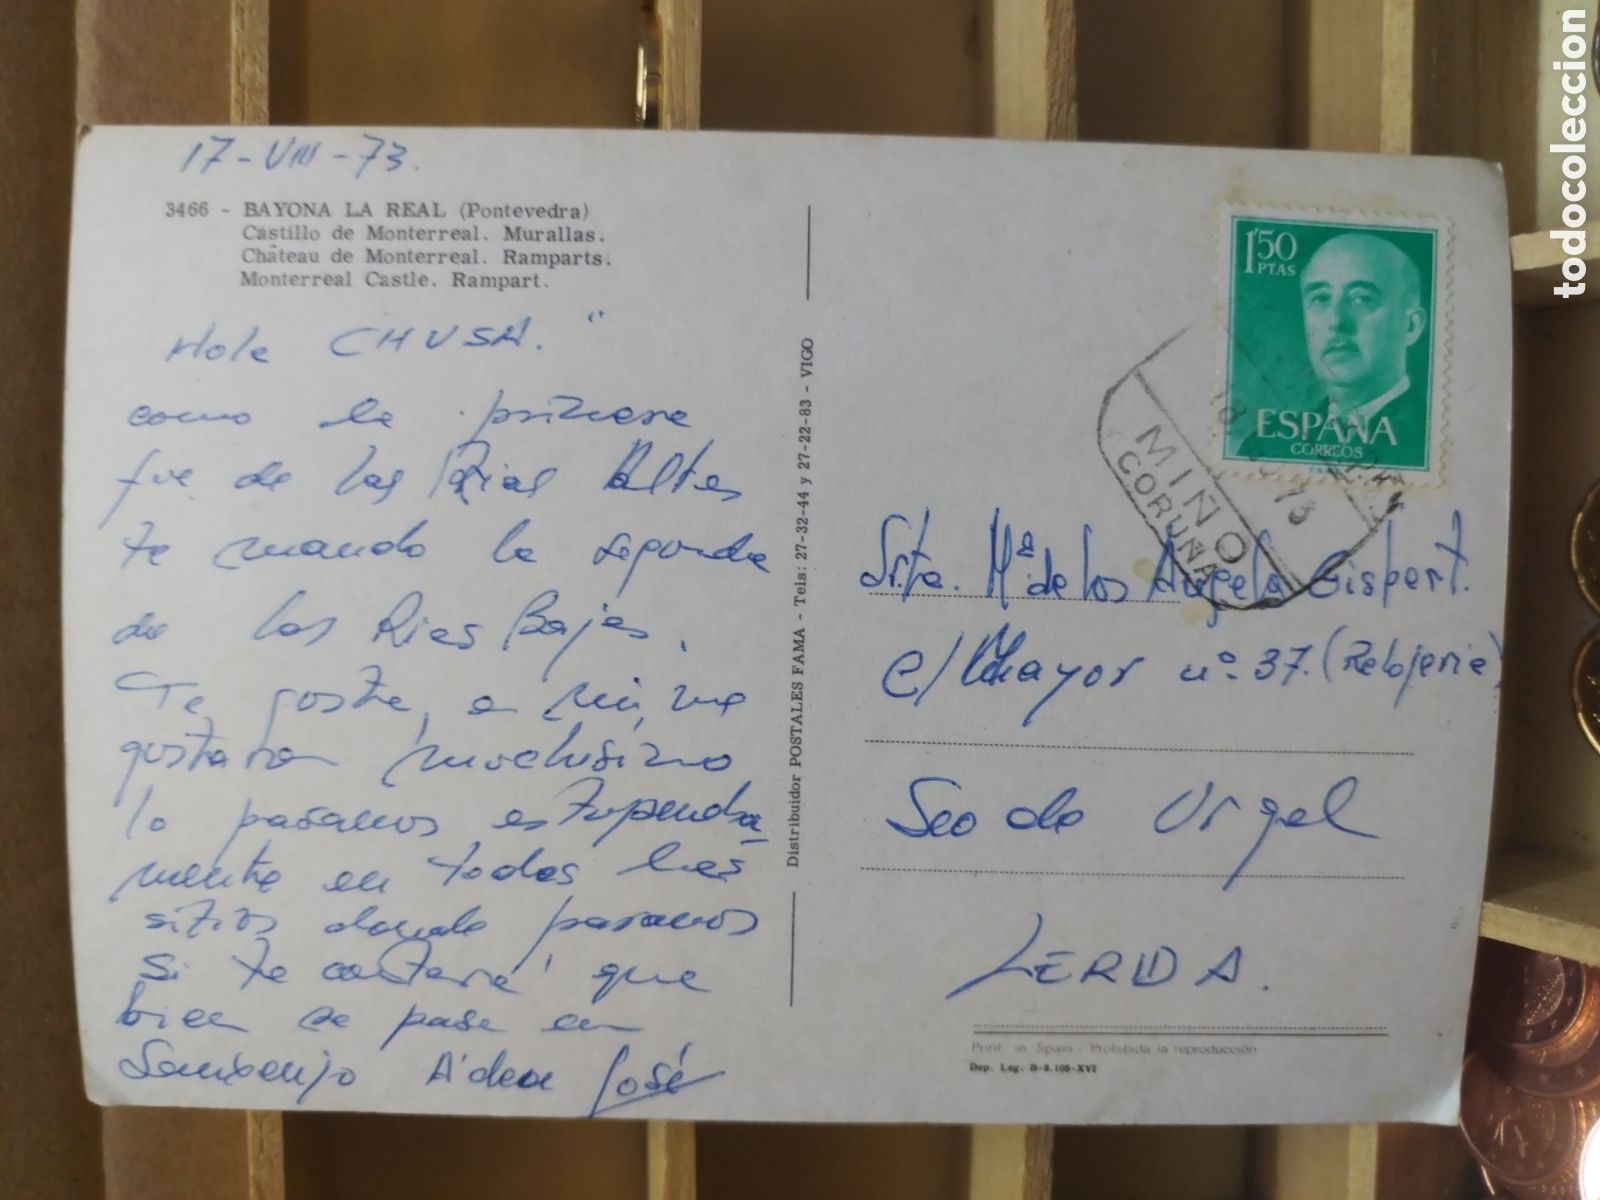 17-VIII-73.
3466 - BAYONA LA REAL (Pontevedra)
Castillo de Monterreal. Murallas.
Château de Monterreal. Ramparts.
Monterreal Castle. Rampart.
Hola CHUSA.
como la primera
fue de las Rias Altas
te mando la segunda
de las Rias Bajas.
Te gosta, a mi, me
gustaron muchisimo
lo pasamos estupenda
mente en todos las
sitios donde pasamos
Si te contara que
bien se pasa en
José
Distribuidor POSTALES FAMA - Tels: 27-32-44 y 27-22-83 - VIGO
1'50
PTAS
ESPAÑA
CORREOS
MIÑO
CORUÑA
Srta. Mª de los Angels Gispert.
c/ Mayor nº 37. (Relojeria)
Seo de Urgel
LERIDA.
Print in Spain - Prohibida la reproducción
Dep. Leg. B-8.105-XVI
todocoleccion